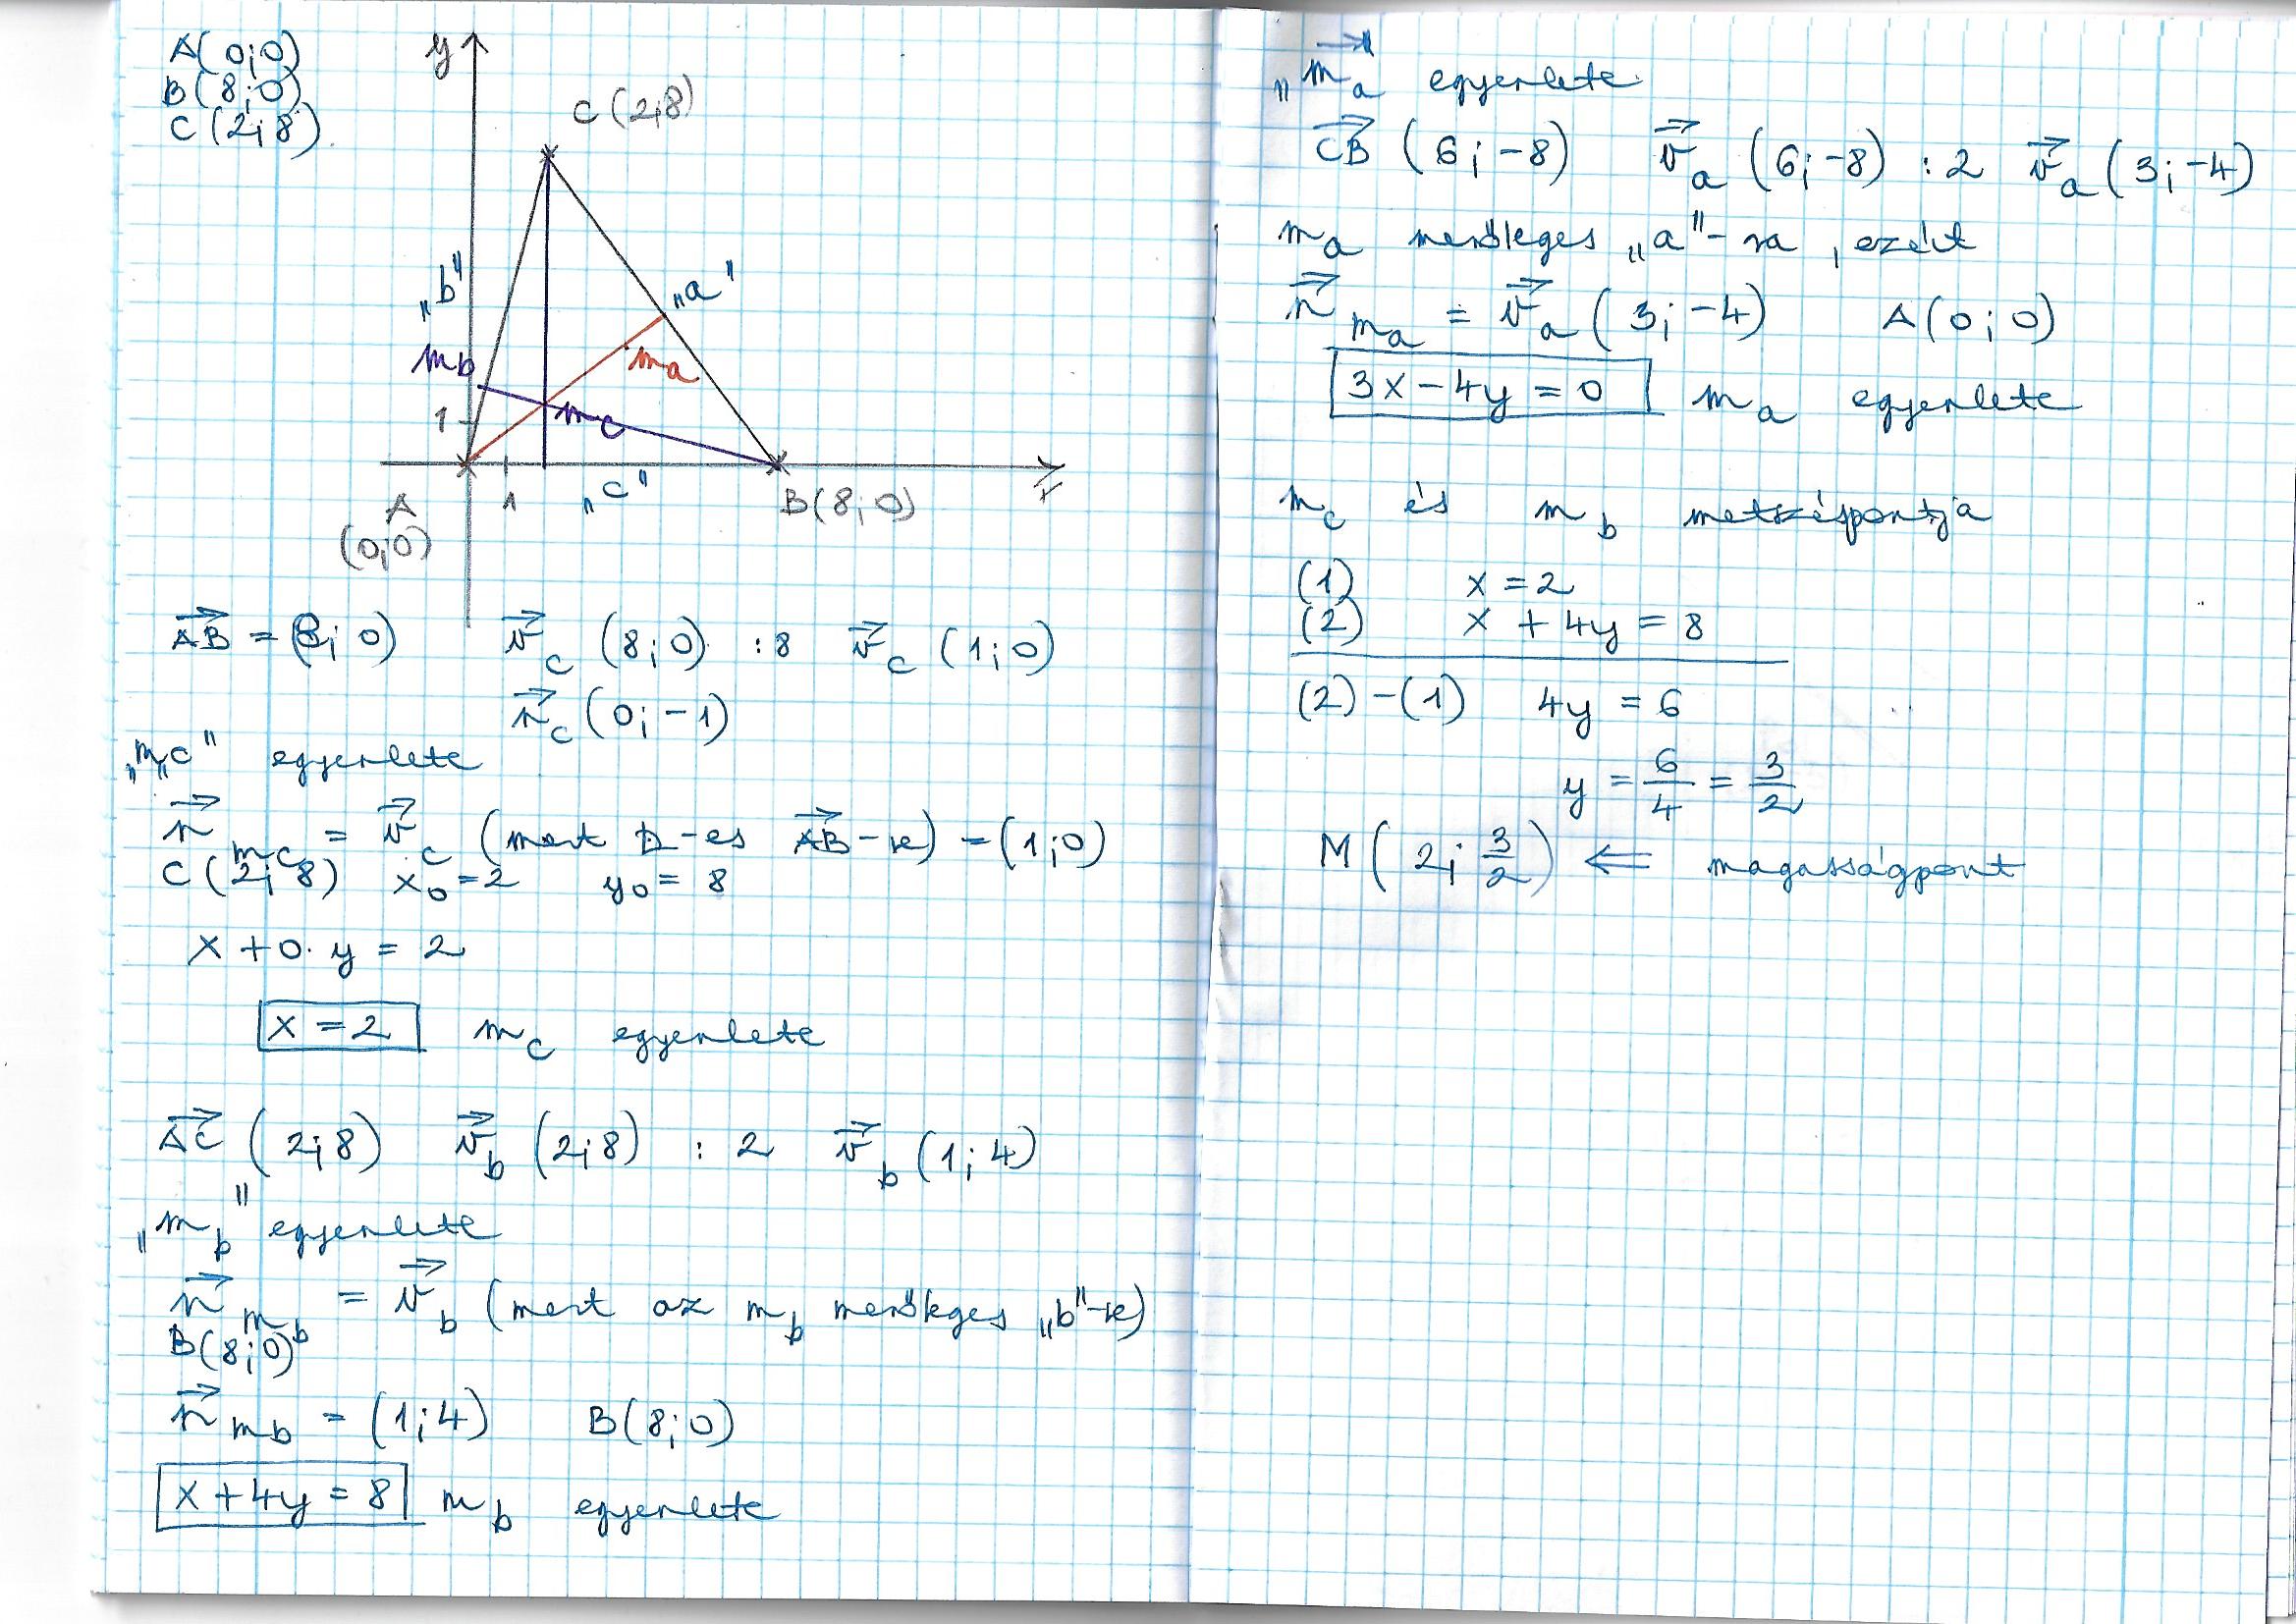 A(0;0)
B(8;0)
C(2;8)
y
C(2;8)
„b"
„a"
mb
ma
1
mc
A
(0;0)
1
„c"
B(8;0)
x
AB = (8;0) v c (8;0) :8 v c (1;0)
n c (0;-1)
„m„c" egyenlete
n mc = v c (mert ⊥-es AB-re) = (1;0)
C(2;8) x0=2 y0=8
x+0·y=2
x=2 m c egyenlete
AC (2;8) v b (2;8) :2 v b (1;4)
„m b" egyenlete
n m b = v b (mert az m b merőleges „b"-re)
B(8;0)
n mb = (1;4) B(8;0)
x+4y=8 m b egyenlete
„m a" egyenlete
CB (6;-8) v a (6;-8) :2 v a (3;-4)
m a merőleges „a"-ra, ezért
n m a = v a (3;-4) A(0;0)
3x-4y=0 m a egyenlete
m c és m b metszéspontja
(1) x=2
(2) x+4y=8
(2)-(1) 4y=6
y = 6/4 = 3/2
M(2; 3/2) ⇐ magasságpont